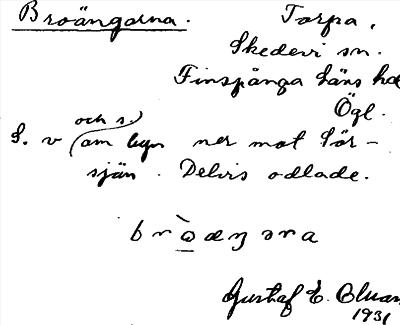 Broängarna. Torpa,
Skedevi sn.
Finspånga läns hd
Ögl.
S. v (och s.) om byn ner mot Sör-
sjön. Delvis odlade.
Gustaf E.
1931